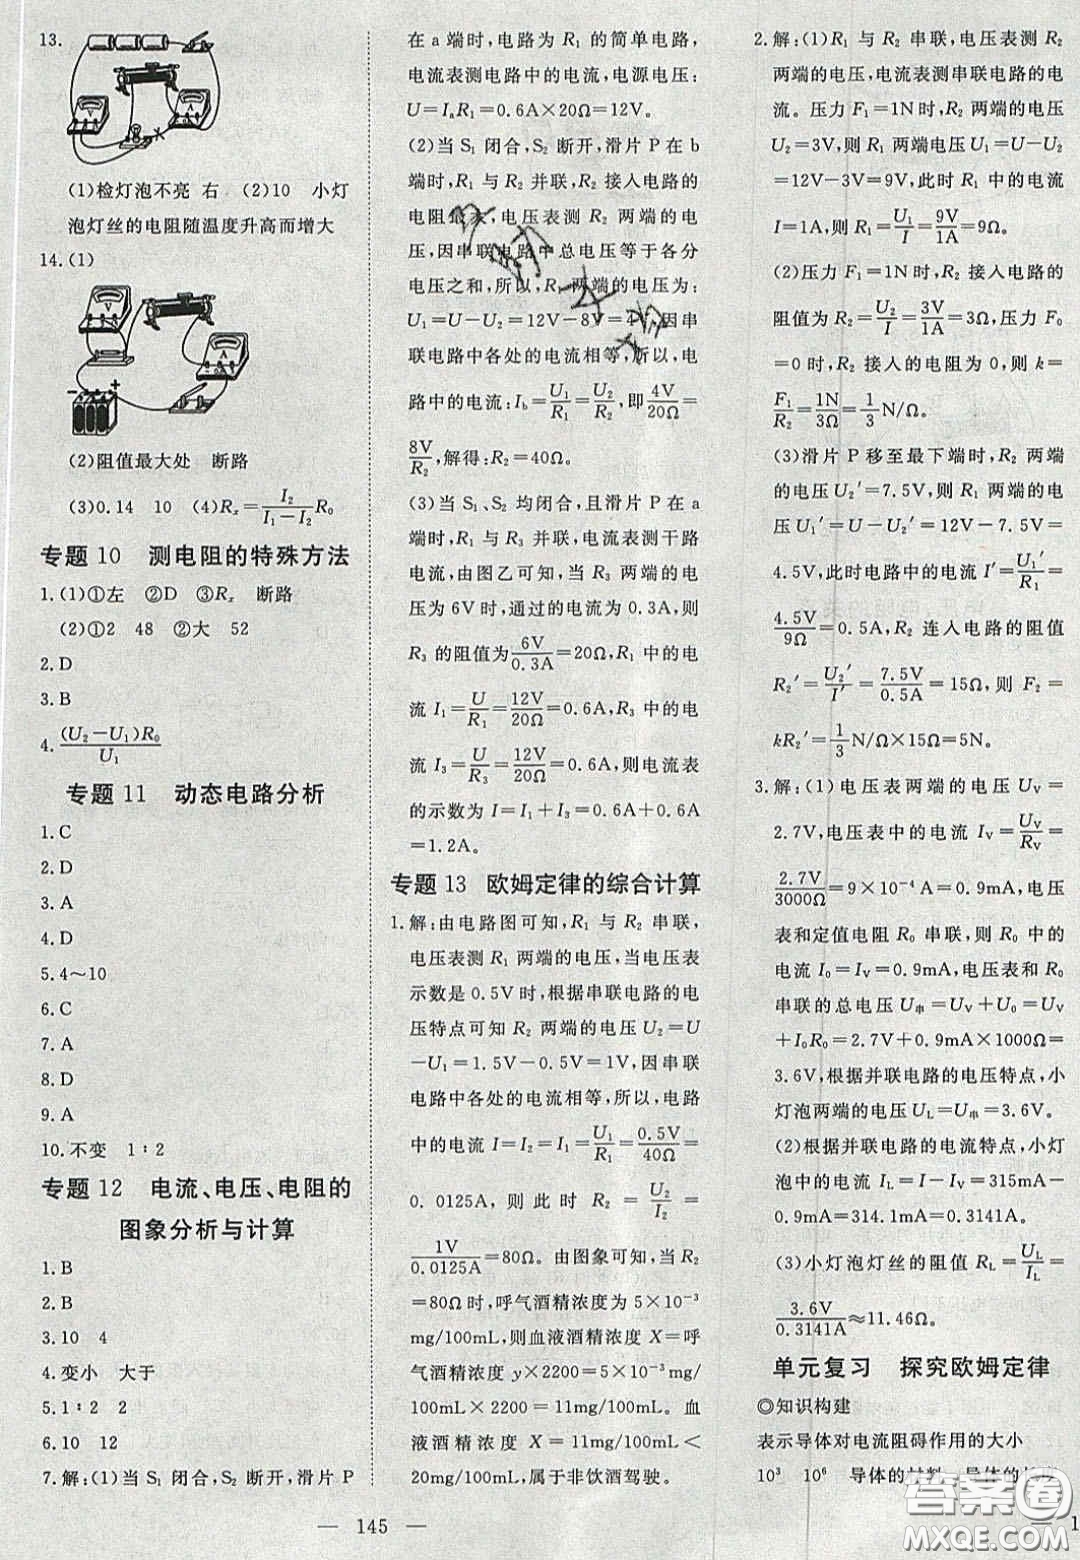 13.
V
A
(1)检灯泡不亮 右 (2)10 小灯
泡灯丝的电阻随温度升高而增大
14.(1)
V
A
- +
(2)阻值最大处 断路
(3)0.14 10 (4)Rₓ=I₂/(I₁-I₂)R₀
专题10 测电阻的特殊方法
1.(1)①左 ②D ③Rₓ 断路
(2)①2 48 ②大 52
2.D
3.B
4.(U₂-U₁)R₀/U₁
专题11 动态电路分析
1.C
2.D
3.A
4.D
5.4~10
6.C
7.A
8.D
9.A
10.不变 1∶2
专题12 电流、电压、电阻的
图象分析与计算
1.B
2.B
3.10 4
4.变小 大于
5.1∶2 2
6.10 12
7.解:(1)当 S₁ 闭合,S₂ 断开,滑片 P
在 a 端时,电路为 R₁ 的简单电路,
电流表测电路中的电流,电源电压:
U=IₐR₁=0.6A×20Ω=12V。
(2)当 S₁ 闭合,S₂ 断开,滑片 P 在 b
端时,R₁ 与 R₂ 串联,R₂ 接入电路的
电阻最大,电压表测 R₂ 两端的电
压,因串联电路中总电压等于各分
电压之和,所以,R₁ 两端的电压为:
U₁=U-U₂=12V-8V=4V,因串
联电路中各处的电流相等,所以,电
路中的电流:I_b=U₁/R₁=U₂/R₂,即4V/20Ω=
8V/R₂,解得:R₂=40Ω。
(3)当 S₁、S₂ 均闭合,且滑片 P 在 a
端时,R₁ 与 R₃ 并联,电流表测干路
电流,由图乙可知,当 R₃ 两端的电
压为6V时,通过的电流为0.3A,则
R₃ 的阻值为6V/0.3A=20Ω,R₁ 中的电
流 I₁=U/R₁=12V/20Ω=0.6A,R₃ 中的电
流 I₃=U/R₃=12V/20Ω=0.6A,电流表
的示数为 I=I₁+I₃=0.6A+0.6A
=1.2A。
专题13 欧姆定律的综合计算
1.解:由电路图可知,R₁ 与 R₂ 串联,
电压表测 R₁ 两端的电压,当电压表
示数是0.5V时,根据串联电路的电
压特点可知 R₂ 两端的电压 U₂=U
-U₁=1.5V-0.5V=1V,因串联
电路中各处的电流相等,所以,电路
中的电流 I=I₂=I₁=U₁/R₁=0.5V/40Ω=
0.0125A,则此时 R₂=U₂/I₂=
1V/0.0125A=80Ω。由图象可知,当 R₂
=80Ω时,呼气酒精浓度为5×10⁻³
mg/100mL,则血液酒精浓度 X=呼
气酒精浓度 y×2200=5×10⁻³mg/
100mL×2200=11mg/100mL。血
液酒精浓度 X=11mg/100mL<
20mg/100mL,属于非饮酒驾驶。
2.解:(1)R₁ 与 R₂ 串联,电压表测 R₂
两端的电压,电流表测串联电路的电
流。压力 F₁=1N时,R₂ 两端的电压
U₂=3V,则 R₁ 两端电压 U₁=U-U₂
=12V-3V=9V,此时 R₁ 中的电流
I=1A,则 R₁=U₁/I=9V/1A=9Ω。
(2)压力 F₁=1N时,R₂ 接入电路的
阻值为 R₂=U₂/I=3V/1A=3Ω,压力 F₀
=0时,R₂ 接入的电阻为0,则 k=
F₁/R₂=1N/3Ω=1/3N/Ω。
(3)滑片 P 移至最下端时,R₂ 两端
的电压 U₂'=7.5V,则 R₁ 两端的电
压 U₁'=U-U₂'=12V-7.5V=
4.5V,此时电路中的电流 I'=U₁'/R₁=
4.5V/9Ω=0.5A,R₂ 连入电路的阻值
R₂'=U₂'/I'=7.5V/0.5A=15Ω,则 F₂=
kR₂'=1/3N/Ω×15Ω=5N。
3.解:(1)电压表两端的电压 U_V=
2.7V,电压表中的电流 I_V=U_V/R_V=
2.7V/3000Ω=9×10⁻⁴A=0.9mA,电压
表和定值电阻 R₀ 串联,则 R₀ 中的
电流 I₀=I_V=0.9mA,电压表和 R₀
串联的总电压 U串=U_V+U₀=U_V
+I₀R₀=2.7V+0.9mA×1000Ω=
3.6V,根据并联电路的电压特点,小
灯泡两端的电压 U_L=U串=3.6V。
(2)根据并联电路的电流特点,小灯
泡中的电流 I_L=I-I_V=315mA-
0.9mA=314.1mA=0.3141A。
(3)小灯泡灯丝的阻值 R_L=U_L/I_L=
3.6V/0.3141A≈11.46Ω。
单元复习 探究欧姆定律
◎知识构建
表示导体对电流阻碍作用的大小
10³ 10⁶ 导体的材料 导体的长度
— 145 —
— 1
答案圈
MXQE.COM